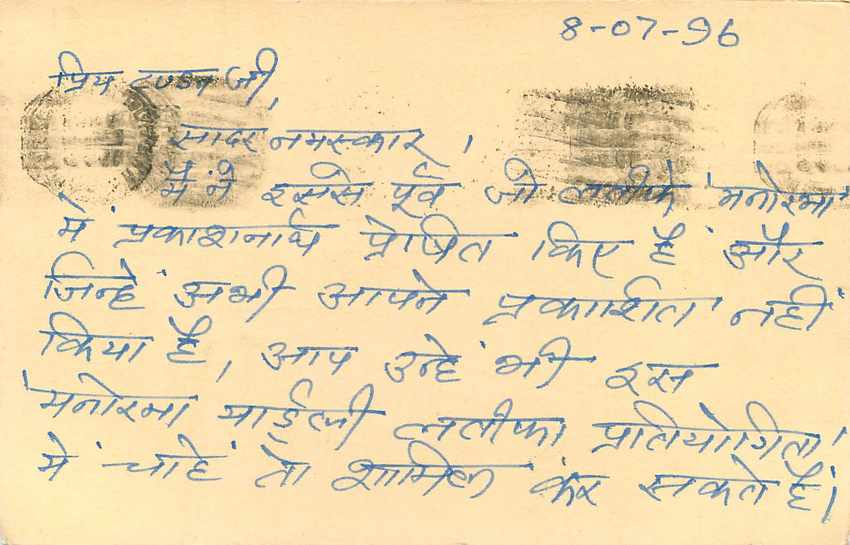 8-07-96
प्रिय टण्डन जी,
सादर नमस्कार ।
मैं ने इससे पूर्व जो लतीफे 'मनोरमा'
में प्रकाशनार्थ प्रेषित किए हैं और
जिन्हें अभी आपने प्रकाशित नहीं
किया है, आप उन्हें भी इस
'मनोरमा लतीफा प्रतियोगिता'
में चाहें तो शामिल कर सकते हैं।